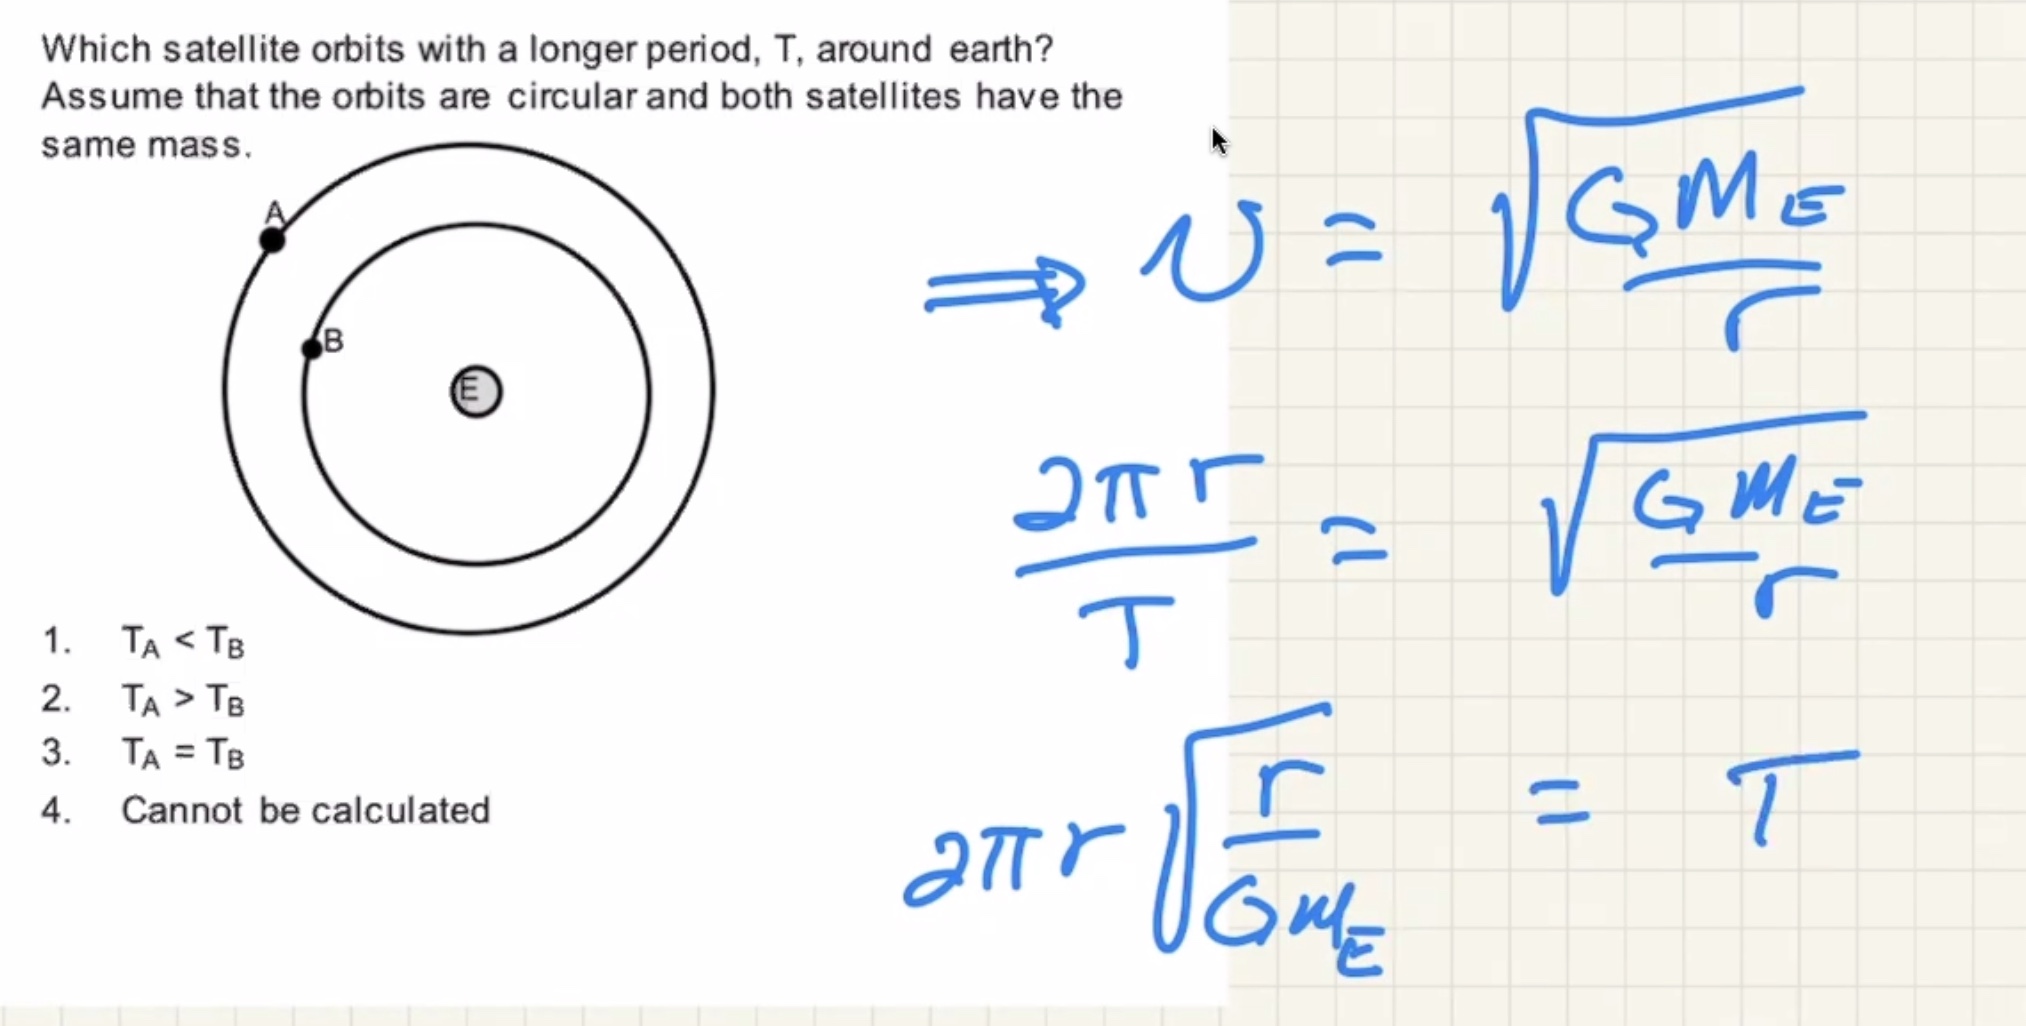 Which satellite orbits with a longer period, T, around earth?
Assume that the orbits are circular and both satellites have the
same mass.
A
B
E
1. T_A < T_B
2. T_A > T_B
3. T_A = T_B
4. Cannot be calculated
⇒ v = √(GM_E / r)
2πr / T = √(GM_E / r)
2πr √(r / GM_E) = T